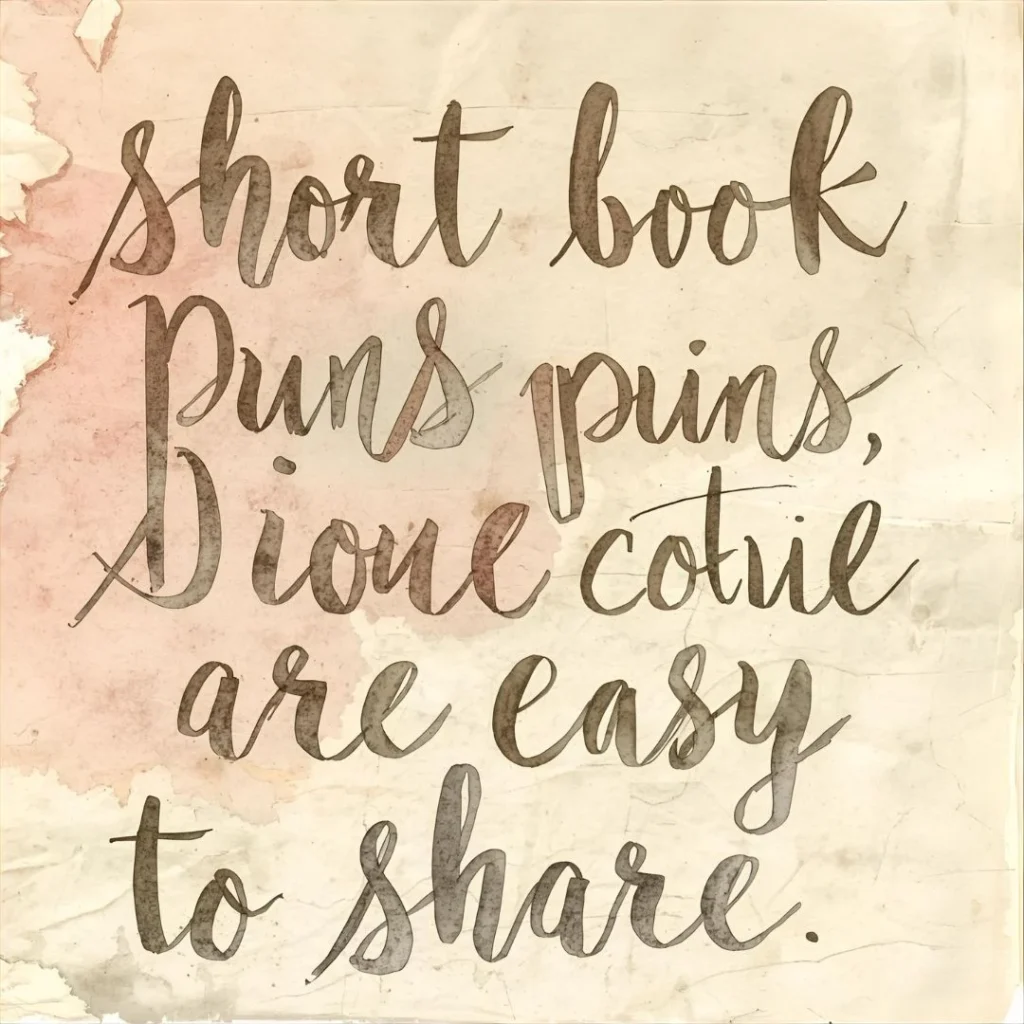 short book
puns puins,
Dioue cotuie
are easy
to share.